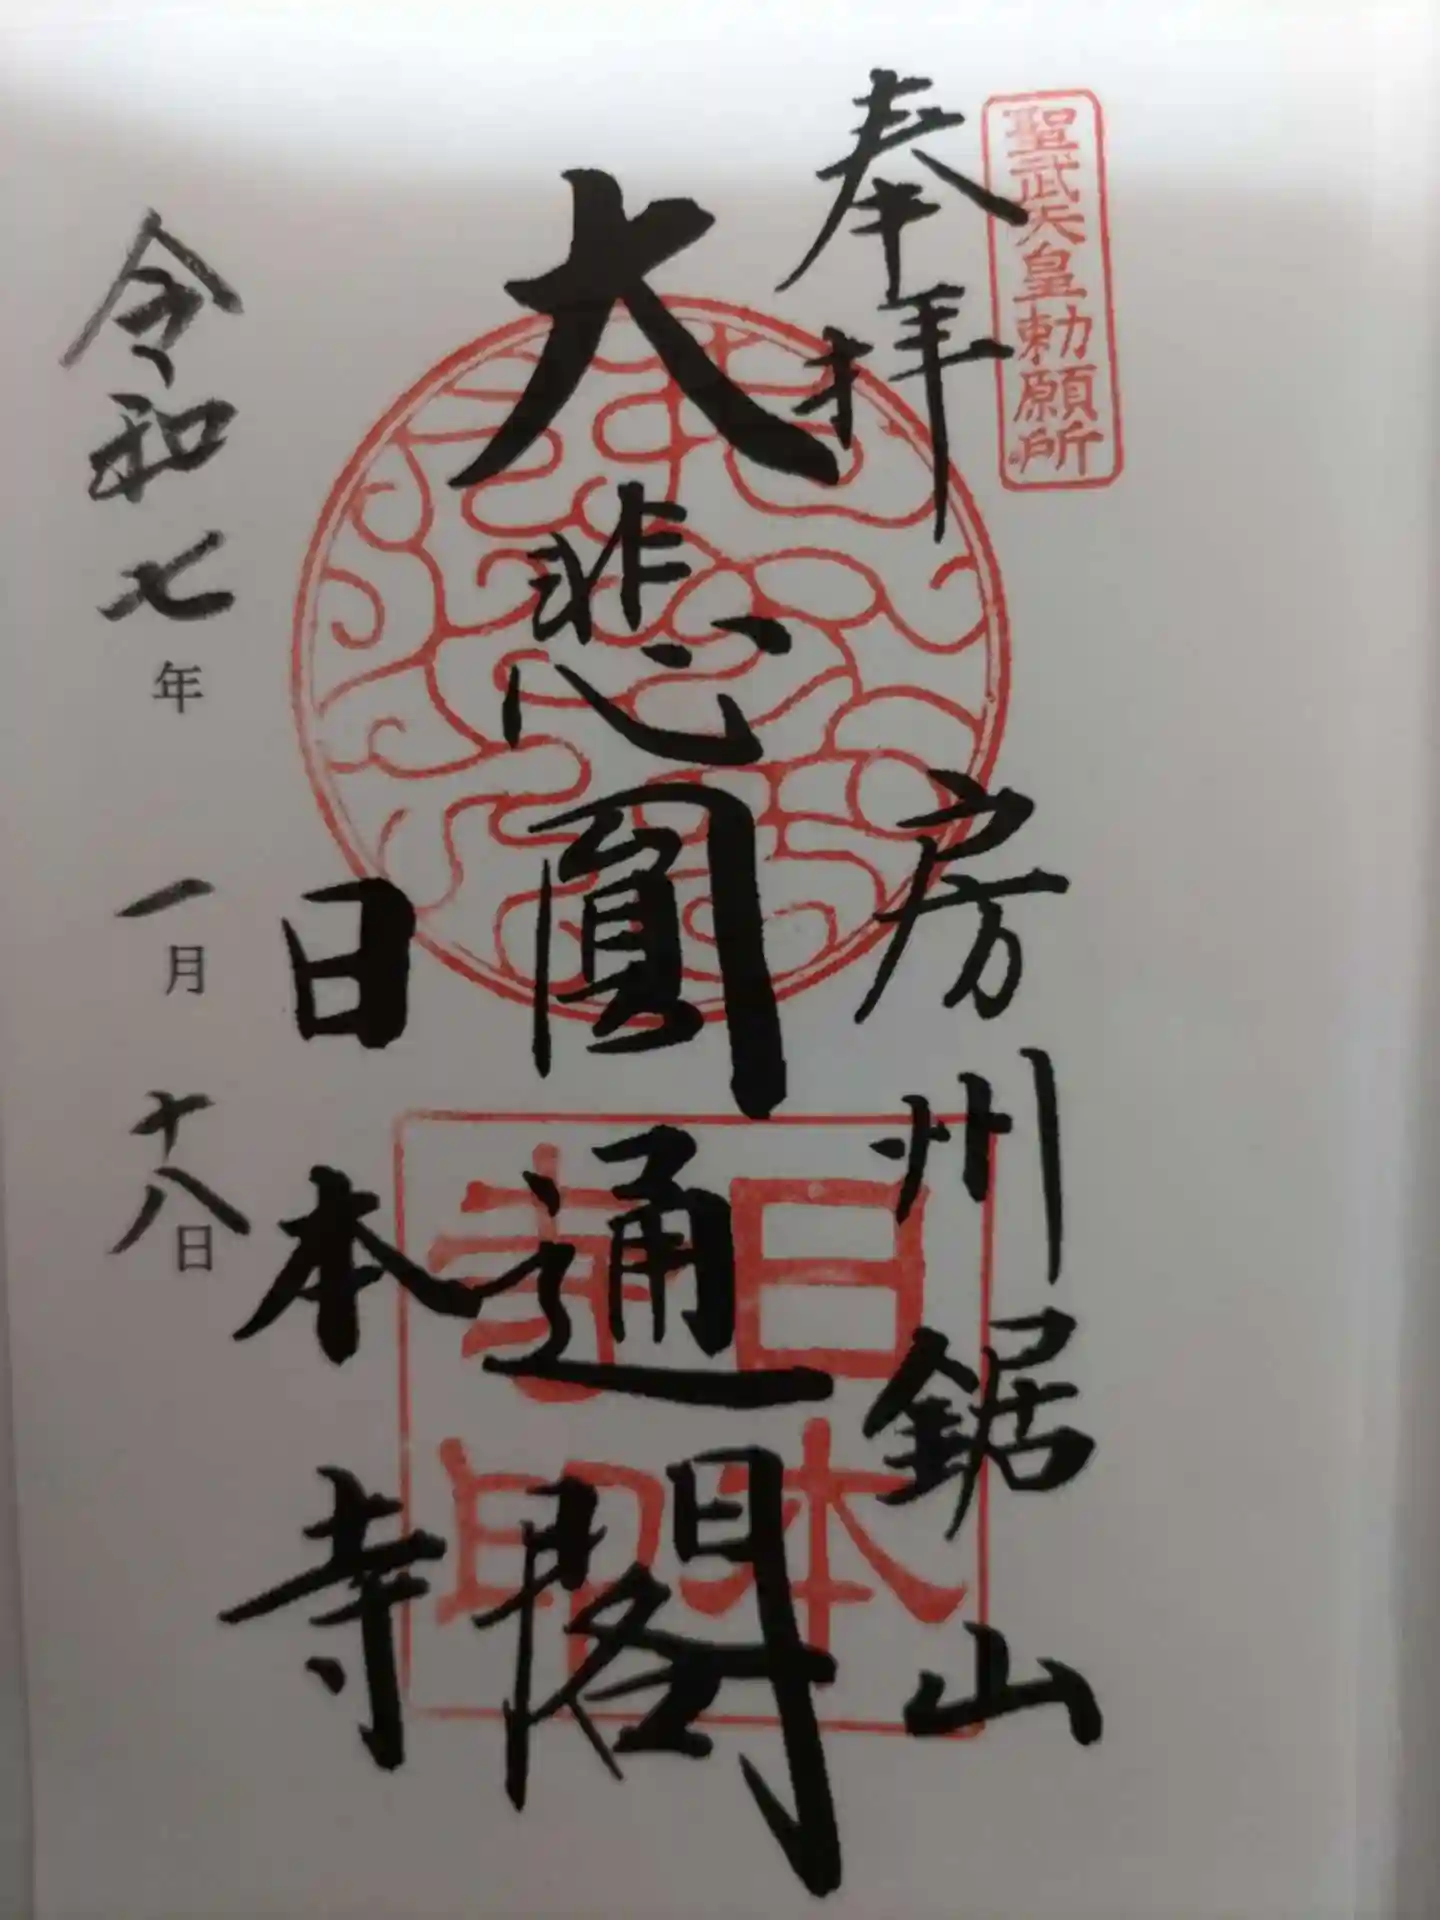 聖武天皇勅願所
奉拝
房州鋸山
大悲圓通閣
日本寺印
日本寺
令和七年一月十八日